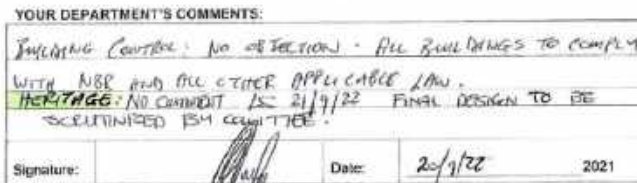 YOUR DEPARTMENT'S COMMENTS:
BUILDING CONTROL: NO OBJECTION - ALL BUILDINGS TO COMPLY
WITH NBR AND ALL OTHER APPLICABLE LAW.
HERITAGE: NO COMMENT 21/9/22 FINAL DESIGN TO BE
SCRUTINIZED BY COMMITTEE.
Signature: Date: 20/9/22 2021